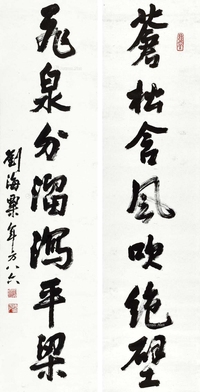 蒼松含風吹絶壁
飛泉分溜瀉平梁
劉海粟年方八六